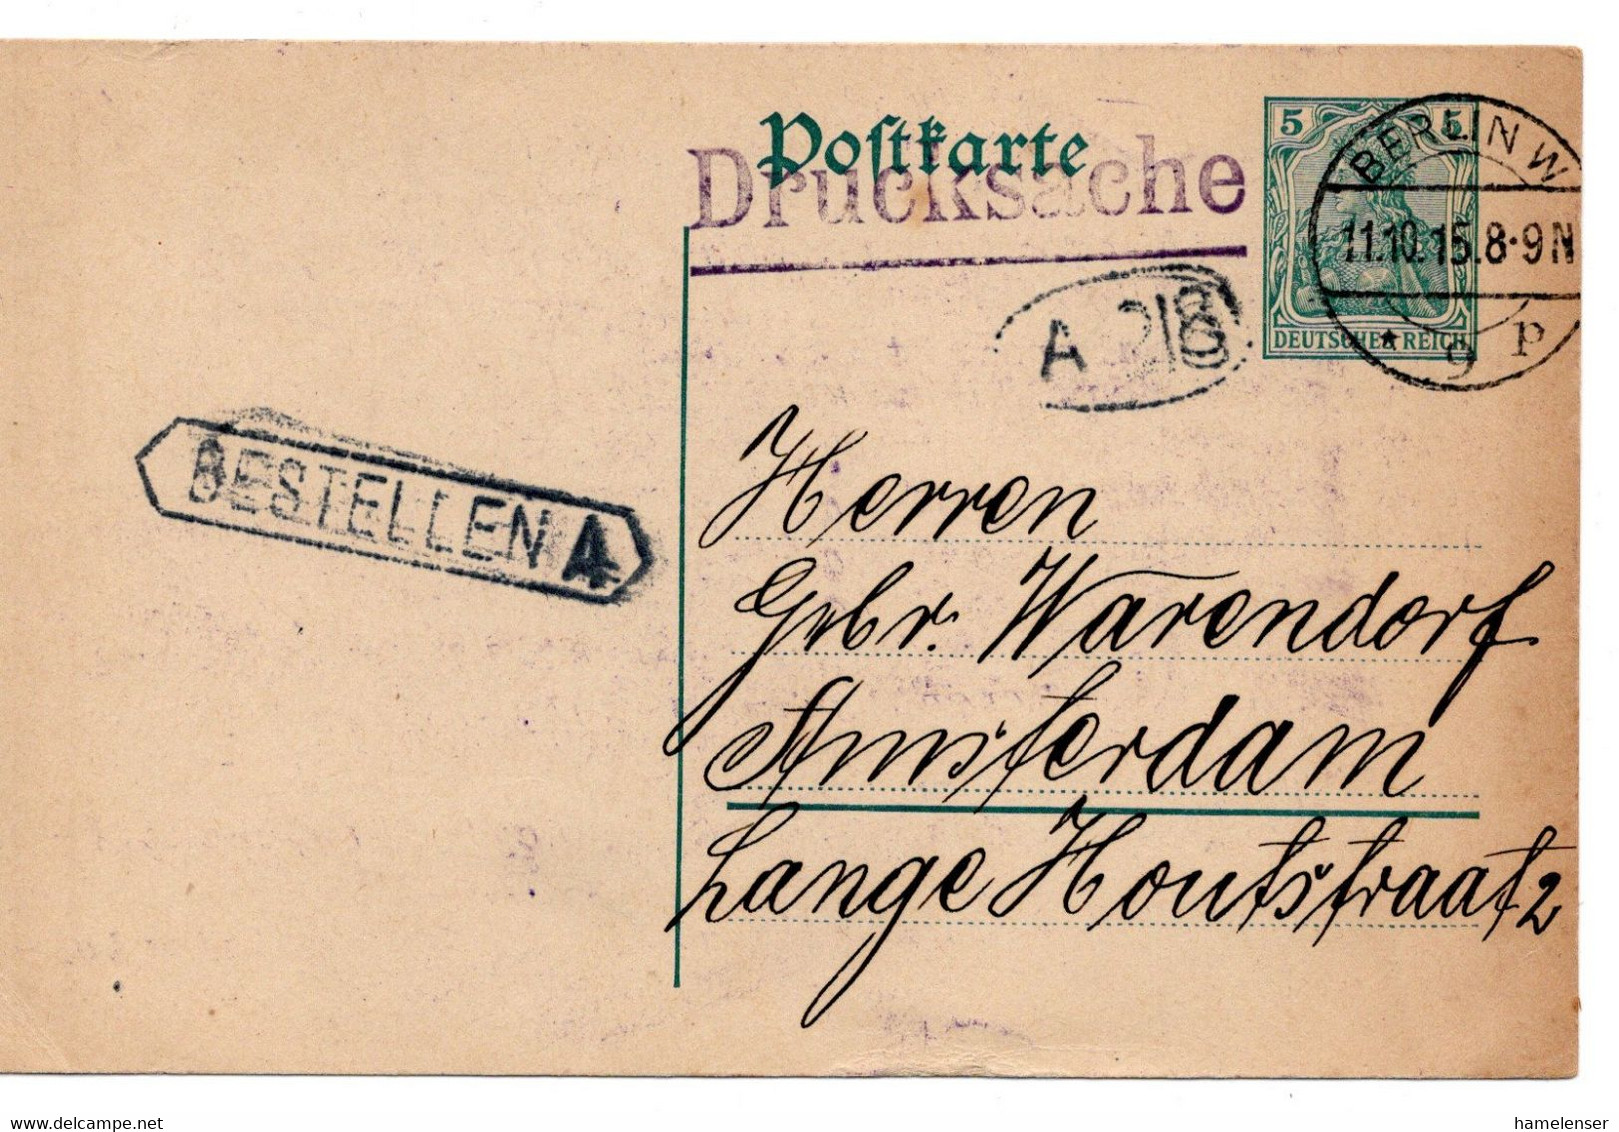 Postkarte
Drucksache
5 5
DEUTSCHES REICH
BERLIN W
11.10.15.8-9N
* 9 p
A 218
BESTELLEN 4
Herren
Gebr. Warendorf
Amsterdam
Lange Houtstraat 2
www.delcampe.net
hamelenser